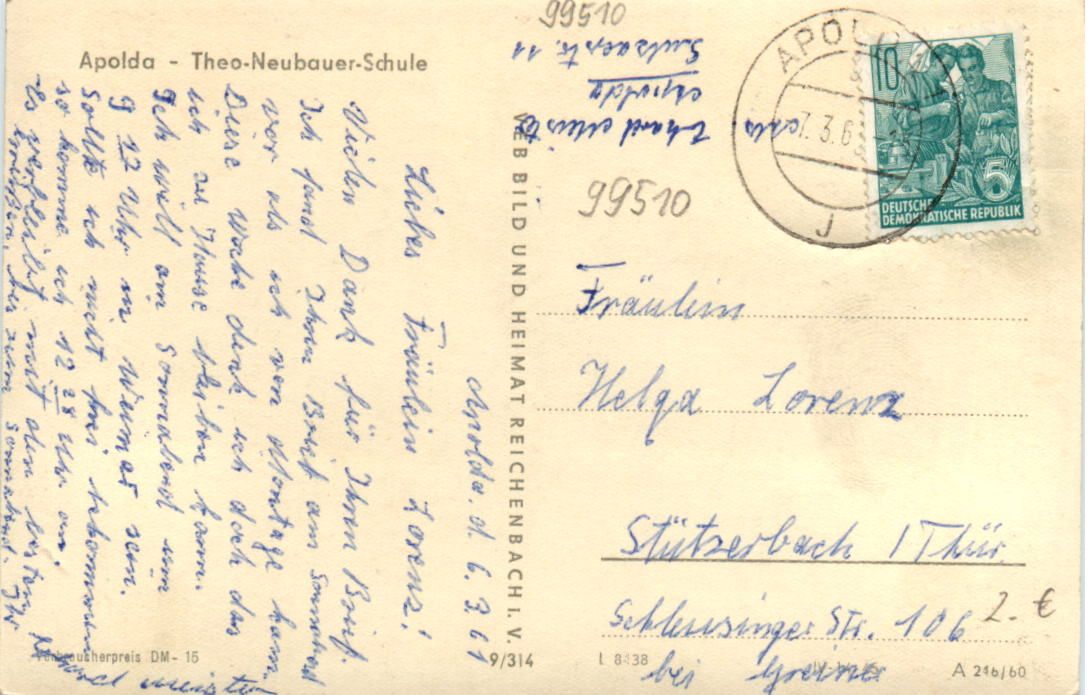 Apolda - Theo-Neubauer-Schule
Apolda. d. 6. 3. 61
Liebes Fräulein Lorenz!
Vielen Dank für Ihren Brief.
Ich fand Ihren Brief am Sonnabend
vor als ich von Montage kam.
Diese Woche denk ich doch das
ich zu Hause bleiben kann.
Ich will am Sonnabend um
9 12 Uhr in Weimar sein.
Sollte ich nicht frei bekommen
so komme ich 12 28 Uhr an.
Es verbleibt mit den besten
Grüßen, bis zum Sonnabend. Ihr
Erhard Meister
Verbraucherpreis DM - 15
VEB BILD UND HEIMAT REICHENBACH I. V.
9/314
99510
Erhard Meister
Apolda
Sulzaerstr. 11
99510
APOLDA
7.3.6
J
10
5
DEUTSCHE
DEMOKRATISCHE REPUBLIK
Fräulein
Helga Lorenz
Stützerbach / Thür.
Schleusinger Str. 106
bei Greiner
2.- €
A 216/60